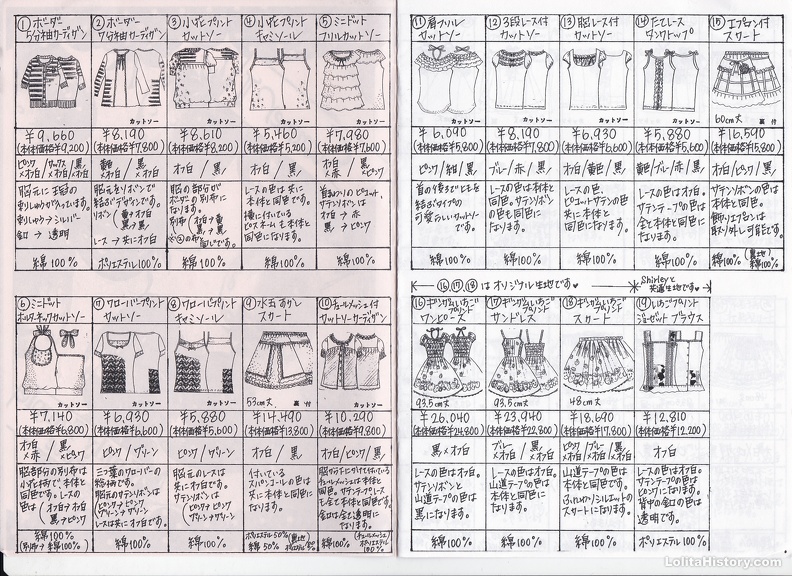 ①ボーダー
5分袖カーディガン
カットソー
¥9,660
(本体価格¥9,200)
ピンク×オフ白/サックス×オフ白/黒×オフ白
胸元に王冠の
刺しゅうが入っています。
刺しゅう→シルバー
釦→透明
綿100%
②ボーダー
7分袖カーディガン
カットソー
¥8,190
(本体価格¥7,800)
オフ白/黒
胸元をリボンで
結ぶデザインです。
リボン
レース→共にオフ白
ポリエステル100%
③小花プリント
カットソー
カットソー
¥8,610
(本体価格¥8,200)
オフ白/黒
胸の部分が
ボーダーの別布に
なります。
別布
綿100%
④小花プリント
キャミソール
カットソー
¥5,460
(本体価格¥5,200)
オフ白/黒
レースの色は共に
本体と同色です。
横に付いている
ピスネームも本体と
同色になります。
綿100%
⑤ミニドット
フリルカットソー
カットソー
¥7,980
(本体価格¥7,600)
オフ白×赤/黒×ピンク
首まわりのピコット、
サテンリボンは
オフ白→赤
黒→ピンク
綿100%
⑥ミニドット
ホルターネックカットソー
カットソー
¥7,140
(本体価格¥6,800)
オフ白×赤/黒×ピンク
胸部分の別布は
小花柄で、本体と
同色です。レースの
色は
オフ白→オフ白
黒→ピンク
綿100%
(別布→綿100%)
⑦クローバープリント
カットソー
カットソー
¥6,930
(本体価格¥6,600)
ピンク/グリーン
三つ葉のクローバーの
総柄です。
胸元のサテンリボンは
ピンク→ピンク
グリーン→グリーン
レースは共にオフ白です。
綿100%
⑧クローバープリント
キャミソール
カットソー
¥5,880
(本体価格¥5,600)
ピンク/グリーン
胸元のレースは
共にオフ白です。
サテンリボンは
ピンク→ピンク
グリーン→グリーン
綿100%
⑨水玉すかし
スカート
53cm丈 裏付
¥14,490
(本体価格¥13,800)
オフ白/黒
付いている
スパンコールの色は
共に本体と同色に
なります。
ポリエステル50%
綿50%
⑩チュールメッシュ付
カットソーカーディガン
カットソー
¥10,290
(本体価格¥9,800)
オフ白/ピンク/黒
チュールメッシュは本体と
同色。サテンテープ、レース
も全て本体と同色です。
釦は全て透明に
なります。
綿100%
(チュールメッシュ)
ポリエステル100%
⑪肩フリル
カットソー
カットソー
¥6,090
(本体価格¥5,800)
ピンク/紺/黒
首の後ろでヒモを
結ぶタイプの
可愛らしいカットソー
です。
綿100%
⑫3段レース付
カットソー
カットソー
¥8,190
(本体価格¥7,800)
ブルー/赤/黒
レースの色は本体と
同色。サテンリボン
の色も同色に
なります。
綿100%
⑬胸レース付
カットソー
カットソー
¥6,930
(本体価格¥6,600)
オフ白/黄色/黒
レースの色、
ピコットサテンの色
共に本体と
同色になります。
綿100%
⑭たてレース
タンクトップ
カットソー
¥5,880
(本体価格¥5,600)
黄色/ブルー/赤/黒
レースの色はオフ白。
サテンテープの色は
全て本体と同色に
なります。
綿100%
⑮エプロン付
スカート
60cm丈 裏付
¥16,590
(本体価格¥15,800)
オフ白/ピンク/黒
サテンリボンの色は
本体と同色。
飾りエプロンは
取り外し可能です。
綿100%
(裏地)
綿100%
⑯⑰⑱はオリジナル生地です♥
Shirleyと
共通生地です♥
⑯ギンガムいちご
プリント
ワンピース
93.5cm丈
¥26,040
(本体価格¥24,800)
黒×オフ白
レースの色はオフ白。
サテンリボンと
山道テープの色は
黒になります。
綿100%
⑰ギンガムいちご
プリント
サンドレス
93.5cm丈
¥23,940
(本体価格¥22,800)
ブルー×オフ白/黒×オフ白
レースの色はオフ白。
山道テープの色は
本体と同色に
なります。
綿100%
⑱ギンガムいちご
プリント
スカート
48cm丈
¥18,690
(本体価格¥17,800)
ピンク×オフ白/ブルー×オフ白/黒×オフ白
山道テープの色は
本体と同色。
ふんわりシルエットの
スカートになります。
綿100%
⑲いちごプリント
ジョーゼットブラウス
¥12,810
(本体価格¥12,200)
オフ白
レースの色はオフ白。
サテンテープの色は
ピンクになります。
背中の釦の色は
透明です。
ポリエステル100%
LolitaHistory.com